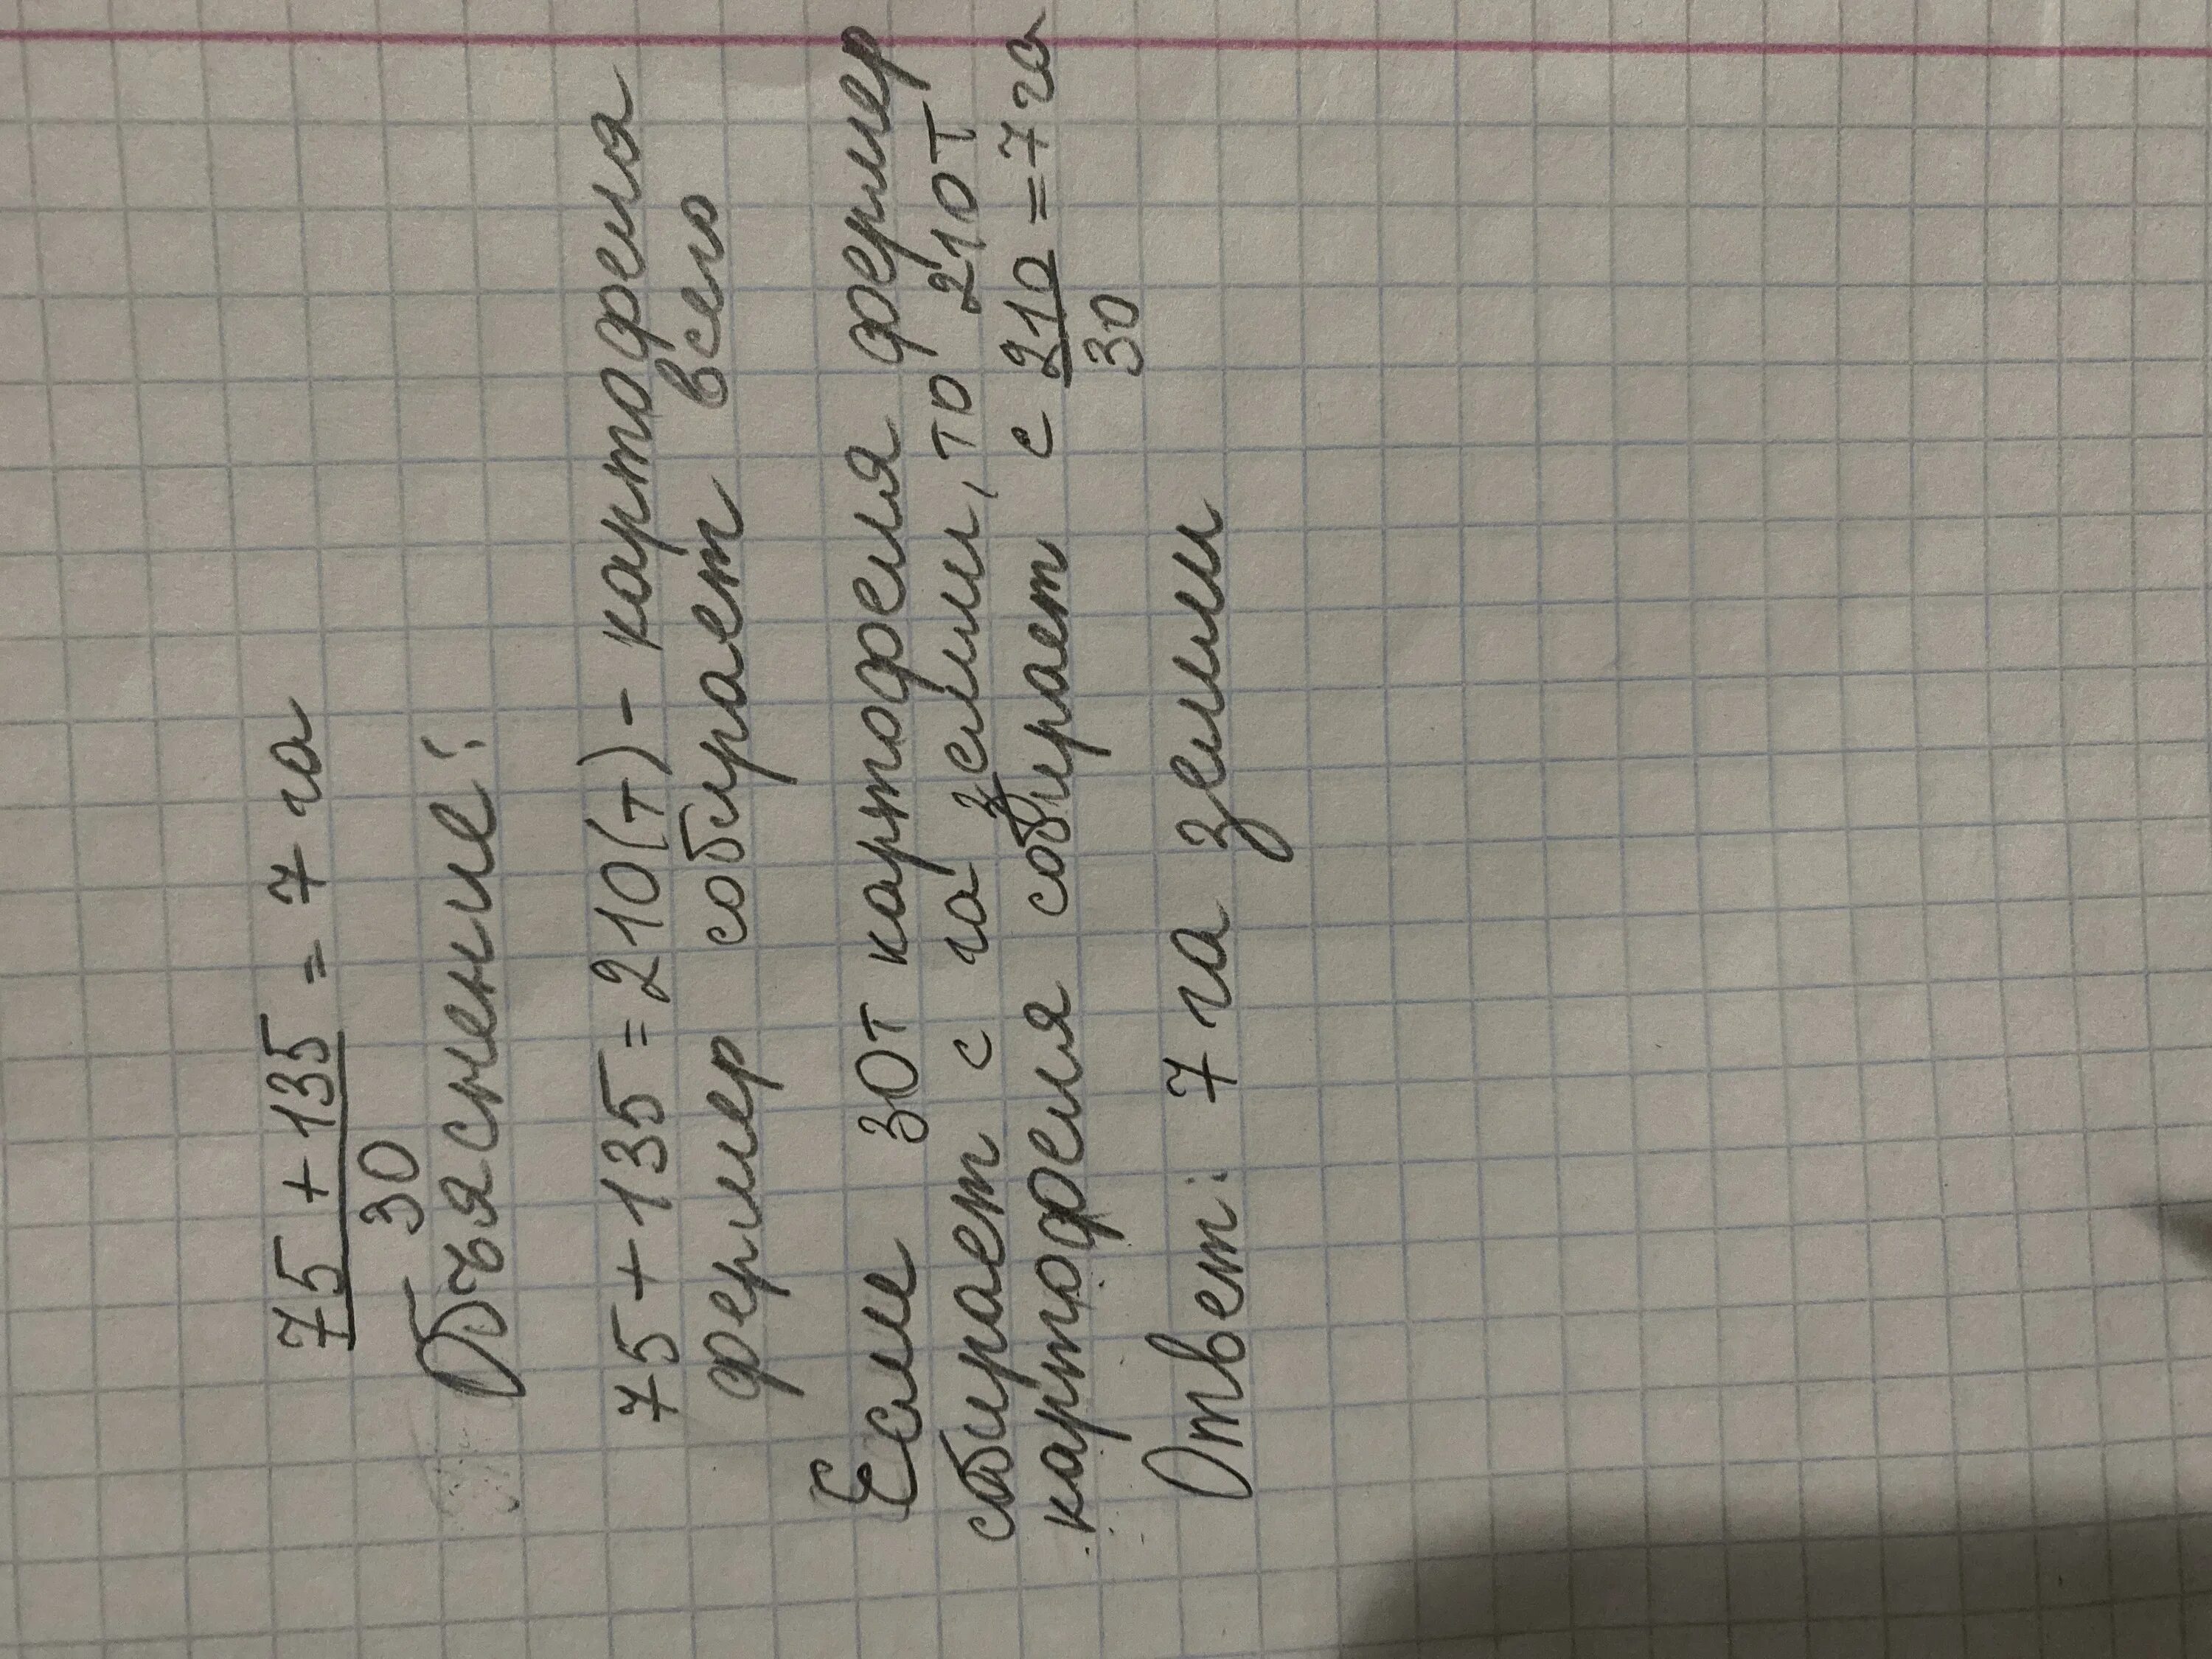 75 + 135 = 7 га
30
Объяснение:
75 + 135 = 210 (т) - картофела
фермер собирает всего
Если 30т картофеля фермер
собирает с га земли, то 210т
картофеля собирает с 210 = 7 га
30
Ответ: 7 га земли